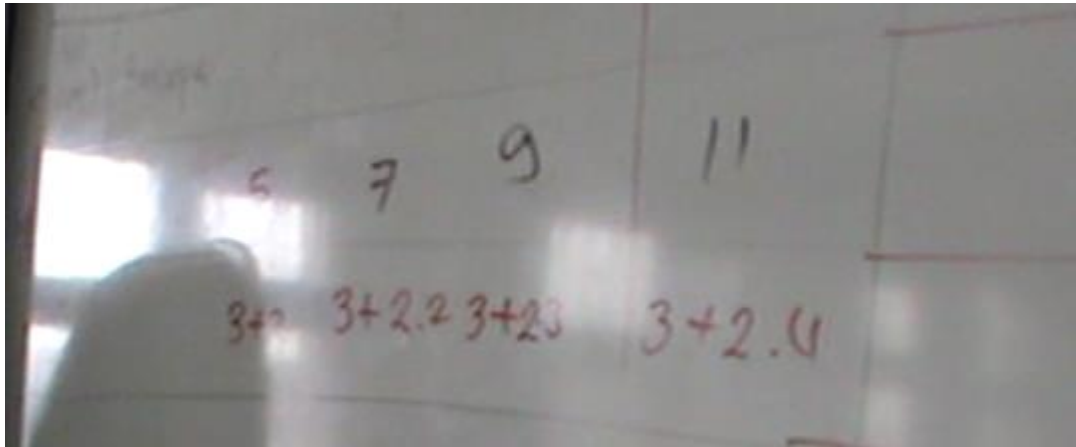 5 7 9 11
3+2 3+2.2 3+2.3 3+2.4